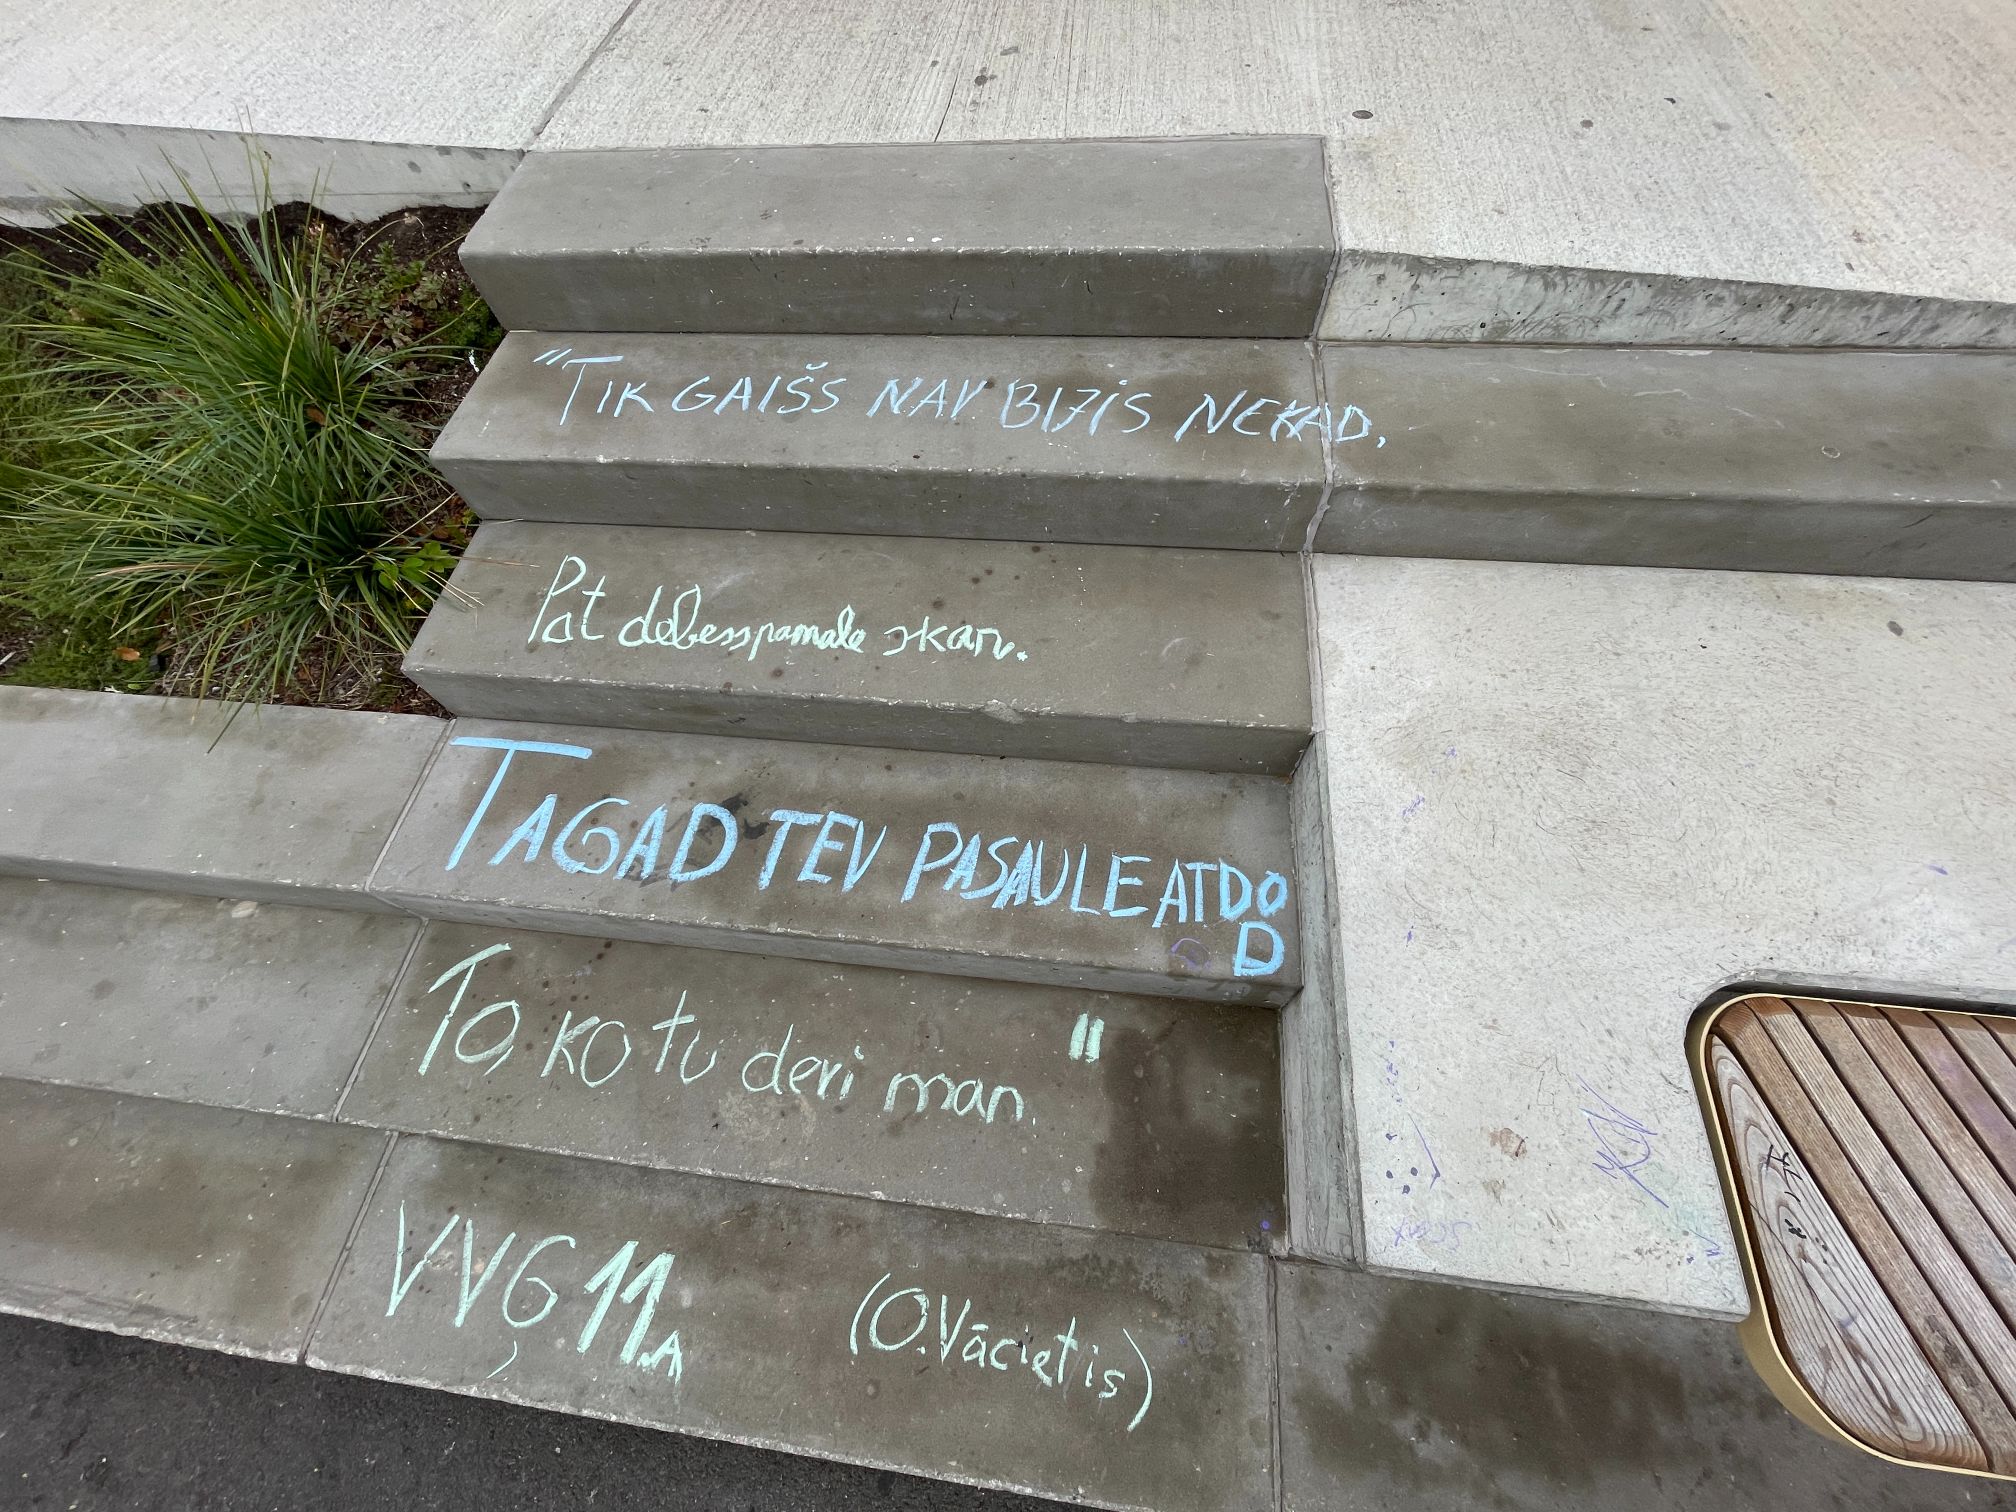 "TIK GAIŠS NAV BIJIS NEKAD,
Pat debesspamale skan.
TAGAD TEV PASAULE ATDO
D
TO, KO tu devi man."
VVĢ 11.A
(O.Vācietis)